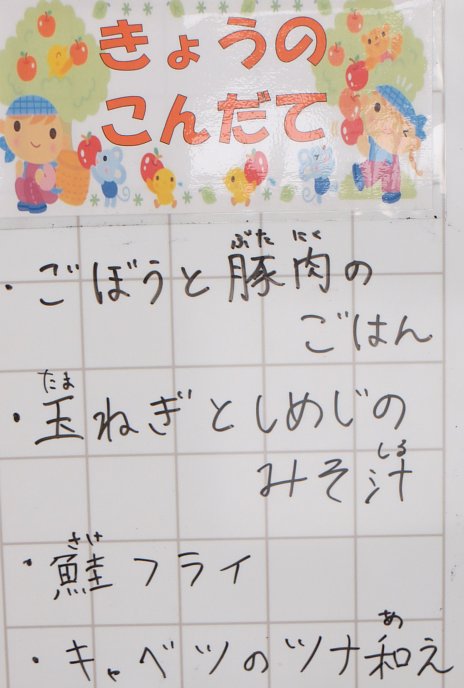 きょうの
こんだて
・ごぼうと豚肉の
ぶた にく
ごはん
・玉ねぎとしめじの
たま
みそ汁
しる
・鮭フライ
さけ
・キャベツのツナ和え
あ